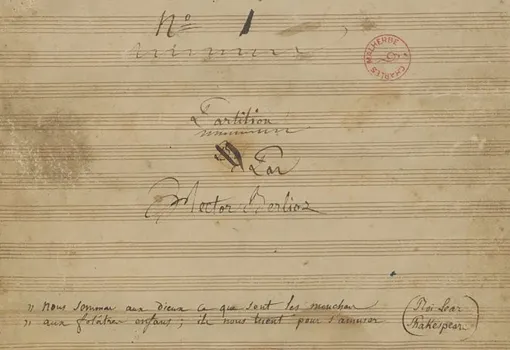 No 1
CHARLES MALHERBE
Partition
Par
Hector Berlioz
" nous sommes aux dieux ce que sont les mouches
" aux folâtres enfans ; ils nous tuent pour s'amuser
Roi Lear
Shakespeare